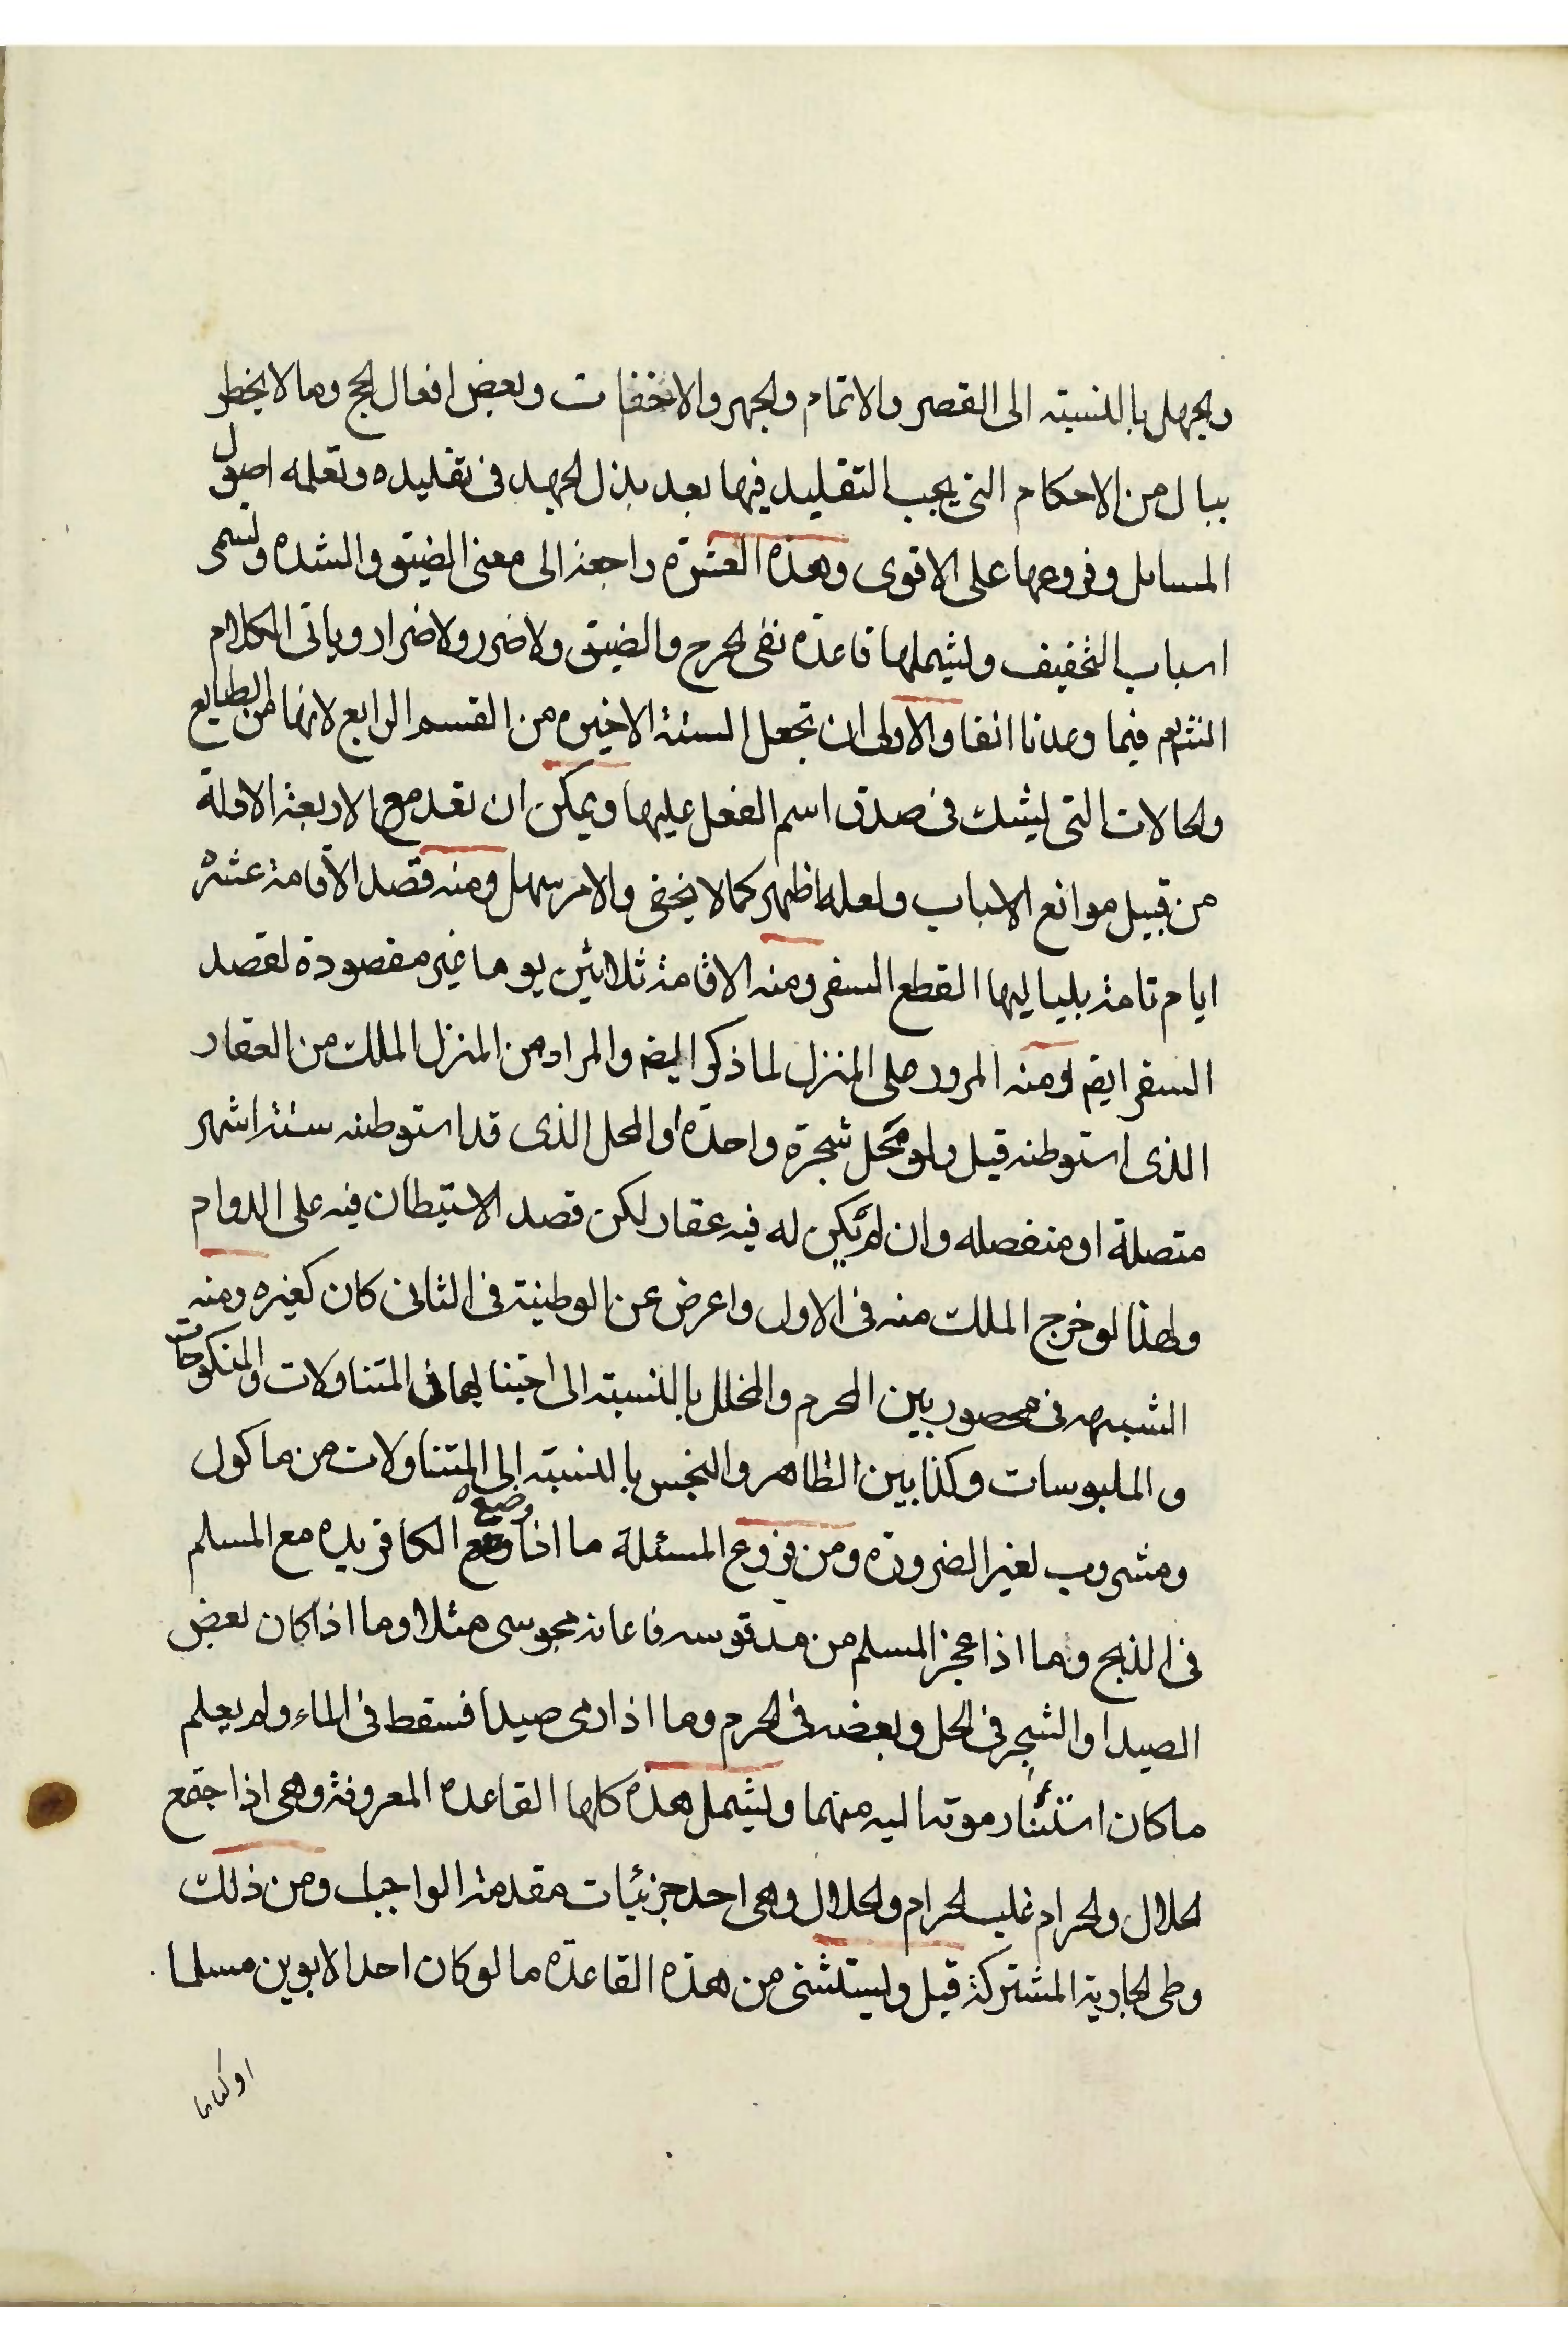 والجهل بالنسبته الى القصر والاتمام والجهر والاخفات وبعض افعال الحج وما لا يخطر
ببال من الاحكام التي يجب التقليد فيها بعد بذل الجهد في تقليده وتعلمه اصول
المسايل وفروعها على الاقوى وهذه العشرة راجعة الى معنى الضيق والشده وتسمى
اسباب التخفيف ويشملها قاعدة نفى الحرج والضيق ولا ضرر ولا ضرار وياتى الكلام
انشاءالله فيما وعدنا انفا والاولى ان تجعل الستة الاخيره من القسم الرابع لانها من الطبايع
والحالات التى يشك فى صدق اسم الفعل عليها ويمكن ان تعد مع الاربعة الاولة
من قبيل موانع الاسباب ولعله اظهر كما لا يخفى والامر سهل ومنه قصد الاقامة عشرة
ايام تامة بلياليها القطع السفر ومنه الاقامة ثلاثين يوما غير مقصودة لقصد
السفر ايضا ومنه المرور على المنزل لما ذكر ايضا والمراد من المنزل الملك من العقار
الذى استوطنه قيل ولو محل شجرة واحدة او المحل الذى قد استوطنه ستة اشهر
متصلة او منفصله وان لم يكن له فيه عقار لكن قصد الاستيطان فيه على الدوام
ولهذا لو خرج الملك منه فى الاول واعرض عن الوطنية فى الثانى كان كغيره ومنه
الشبهه فى محصور بين المحرم والمحلل بالنسبته الى اجتنابهما فى المتناولات والمنكوحات
والملبوسات وكذا بين الطاهر والنجس بالنسبته الى المتناولات من ماكول
ومشروب لغير الضرورة ومن فروع المسئلة ما اذا وضع الكافر يده مع المسلم
فى الذبح وما اذا عجز المسلم من مد قوسه فاعانه مجوسى مثلا وما اذا كان بعض
الصيد او الشجر فى الحل وبعضه فى الحرم وما اذا رمى صيدا فسقط فى الماء ولم يعلم
ما كان استناد موته اليه منهما ويشمل هذه كلها القاعدة المعروفة وهى اذا اجتمع
الحلال والحرام غلب الحرام والحلال وهى احد جزئيات مقدمة الواجب ومن ذلك
وطى الجارية المشتركة قيل ويستثنى من هذه القاعدة ما لو كان احد الابوين مسلما
او كتابيا